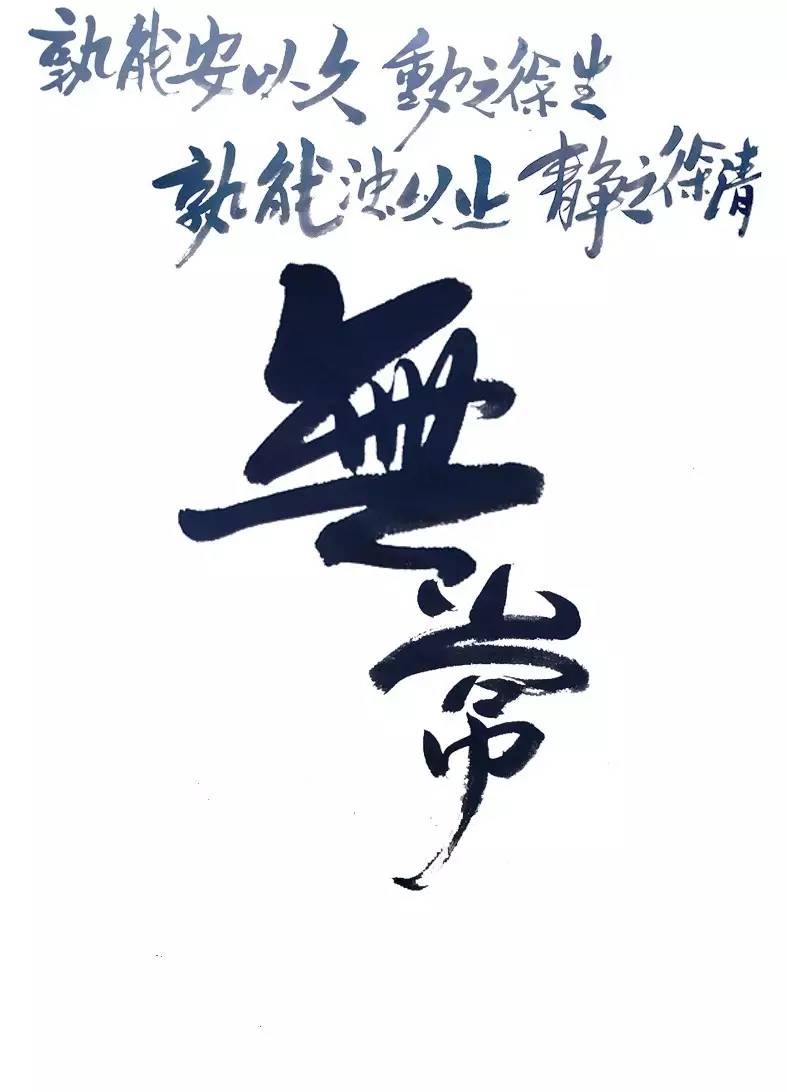 孰能安以久 動之徐生
孰能浊以止 静之徐清
無常